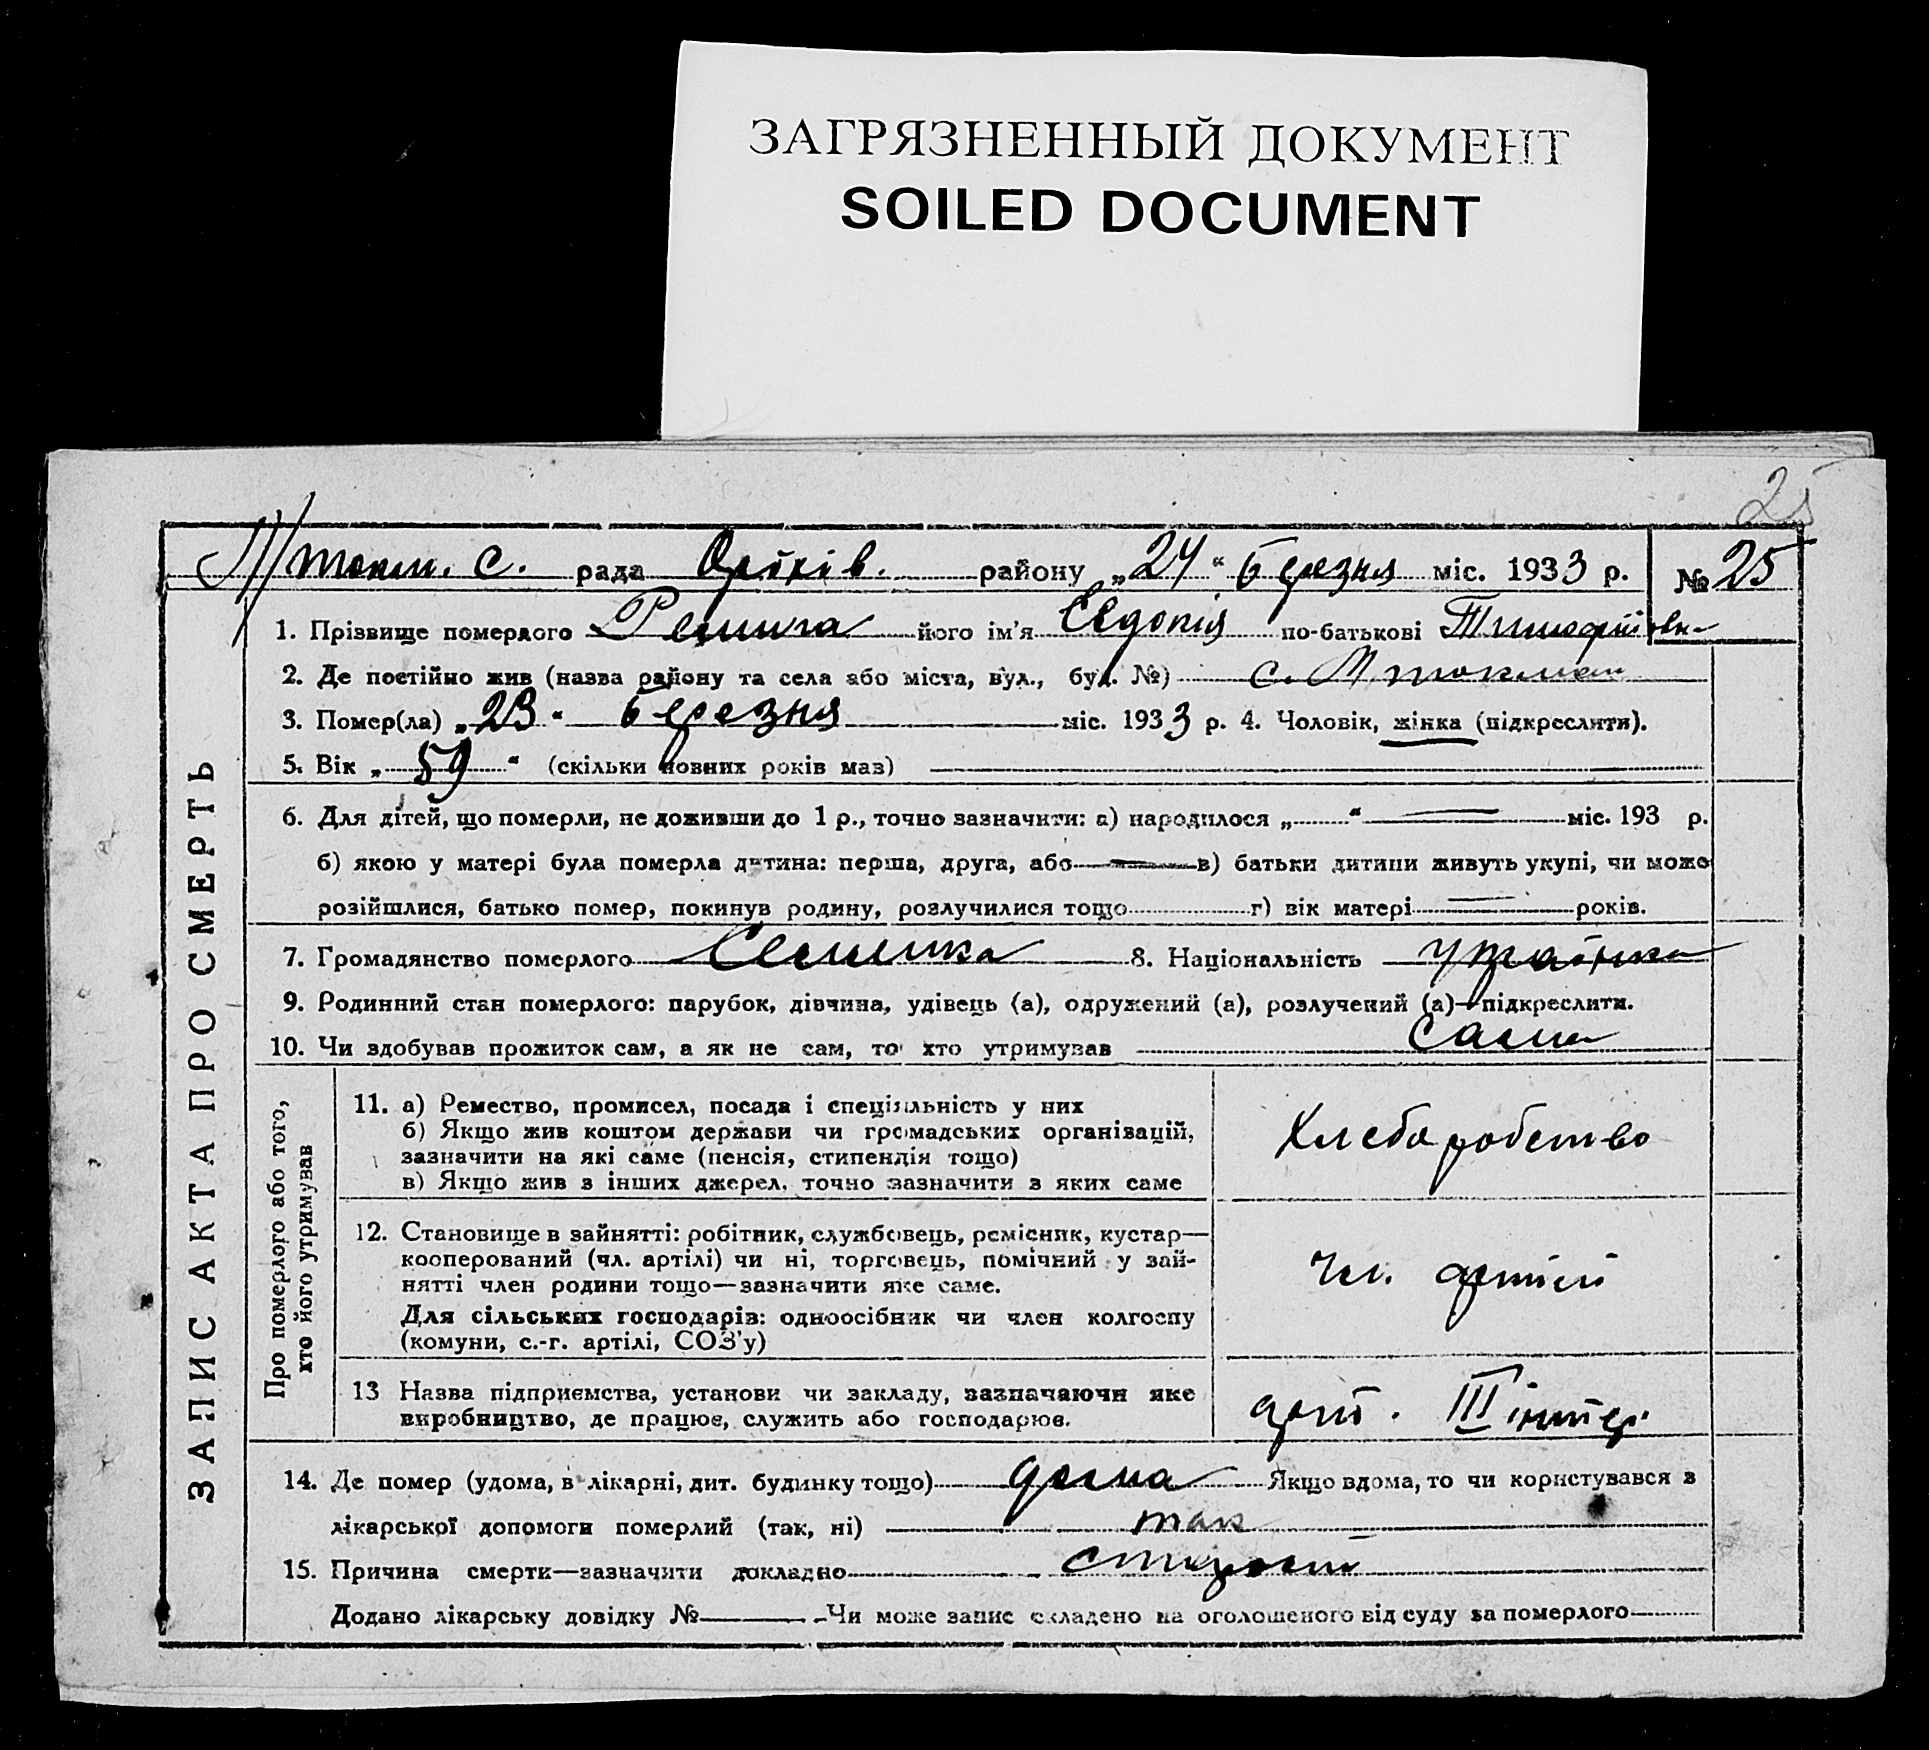 ЗАГРЯЗНЕННЫЙ ДОКУМЕНТ
SOILED DOCUMENT
25
М/токм. с. рада Оріхів. району „24“ березня міс. 1933 р. № 25
1. Прізвище померлого його ім'я Євдокія по-батькові Тимофіївн
2. Де постійно жив (назва району та села або міста, вул., буд. №) с. М токмач
3. Помер(ла) „23“ березня міс. 1933 р. 4. Чоловік, жінка (підкреслити).
5. Вік „59“ (скільки повних років мав)
6. Для дітей, що померли, не доживши до 1 р., точно зазначити: а) народилося „ “ — міс. 193 р.
б) якою у матері була померла дитина: перша, друга, або — в) батьки дитини живуть укупі, чи може
розійшлися, батько помер, покинув родину, розлучилися тощо г) вік матері — років.
7. Громадянство померлого 8. Національність українка
9. Родинний стан померлого: парубок, дівчина, удівець (а), одружений (а), розлучений (а)—підкреслити.
10. Чи здобував прожиток сам, а як не сам, то хто утримував сама
ЗАПИС АКТА ПРО СМЕРТЬ
Про померлого або того, хто його утримував
11. а) Ремество, промисел, посада і спеціяльність у них
б) Якщо жив коштом держави чи громадських організацій,
зазначити на які саме (пенсія, стипендія тощо)
в) Якщо жив з інших джерел, точно зазначити з яких саме
Хлеборобство
12. Становище в зайнятті: робітник, службовець, ремісник, кустар—
кооперований (чл. артілі) чи ні, торговець, помічний у зай-
нятті член родини тощо—зазначити яке саме.
Для сільських господарів: одноосібник чи член колгоспу
(комуни, с.-г. артілі, СОЗ'у)
чл. артілі
13 Назва підприємства, установи чи закладу, зазначаючи яке
виробництво, де працює, служить або господарює.
арт. III інтер
14. Де помер (удома, в лікарні, дит. будинку тощо) дома Якщо вдома, то чи користувався з
лікарської допомоги померлий (так, ні) так
15. Причина смерти—зазначити докладно старость
Додано лікарську довідку № — Чи може запис складено на оголошеного від суду за померлого